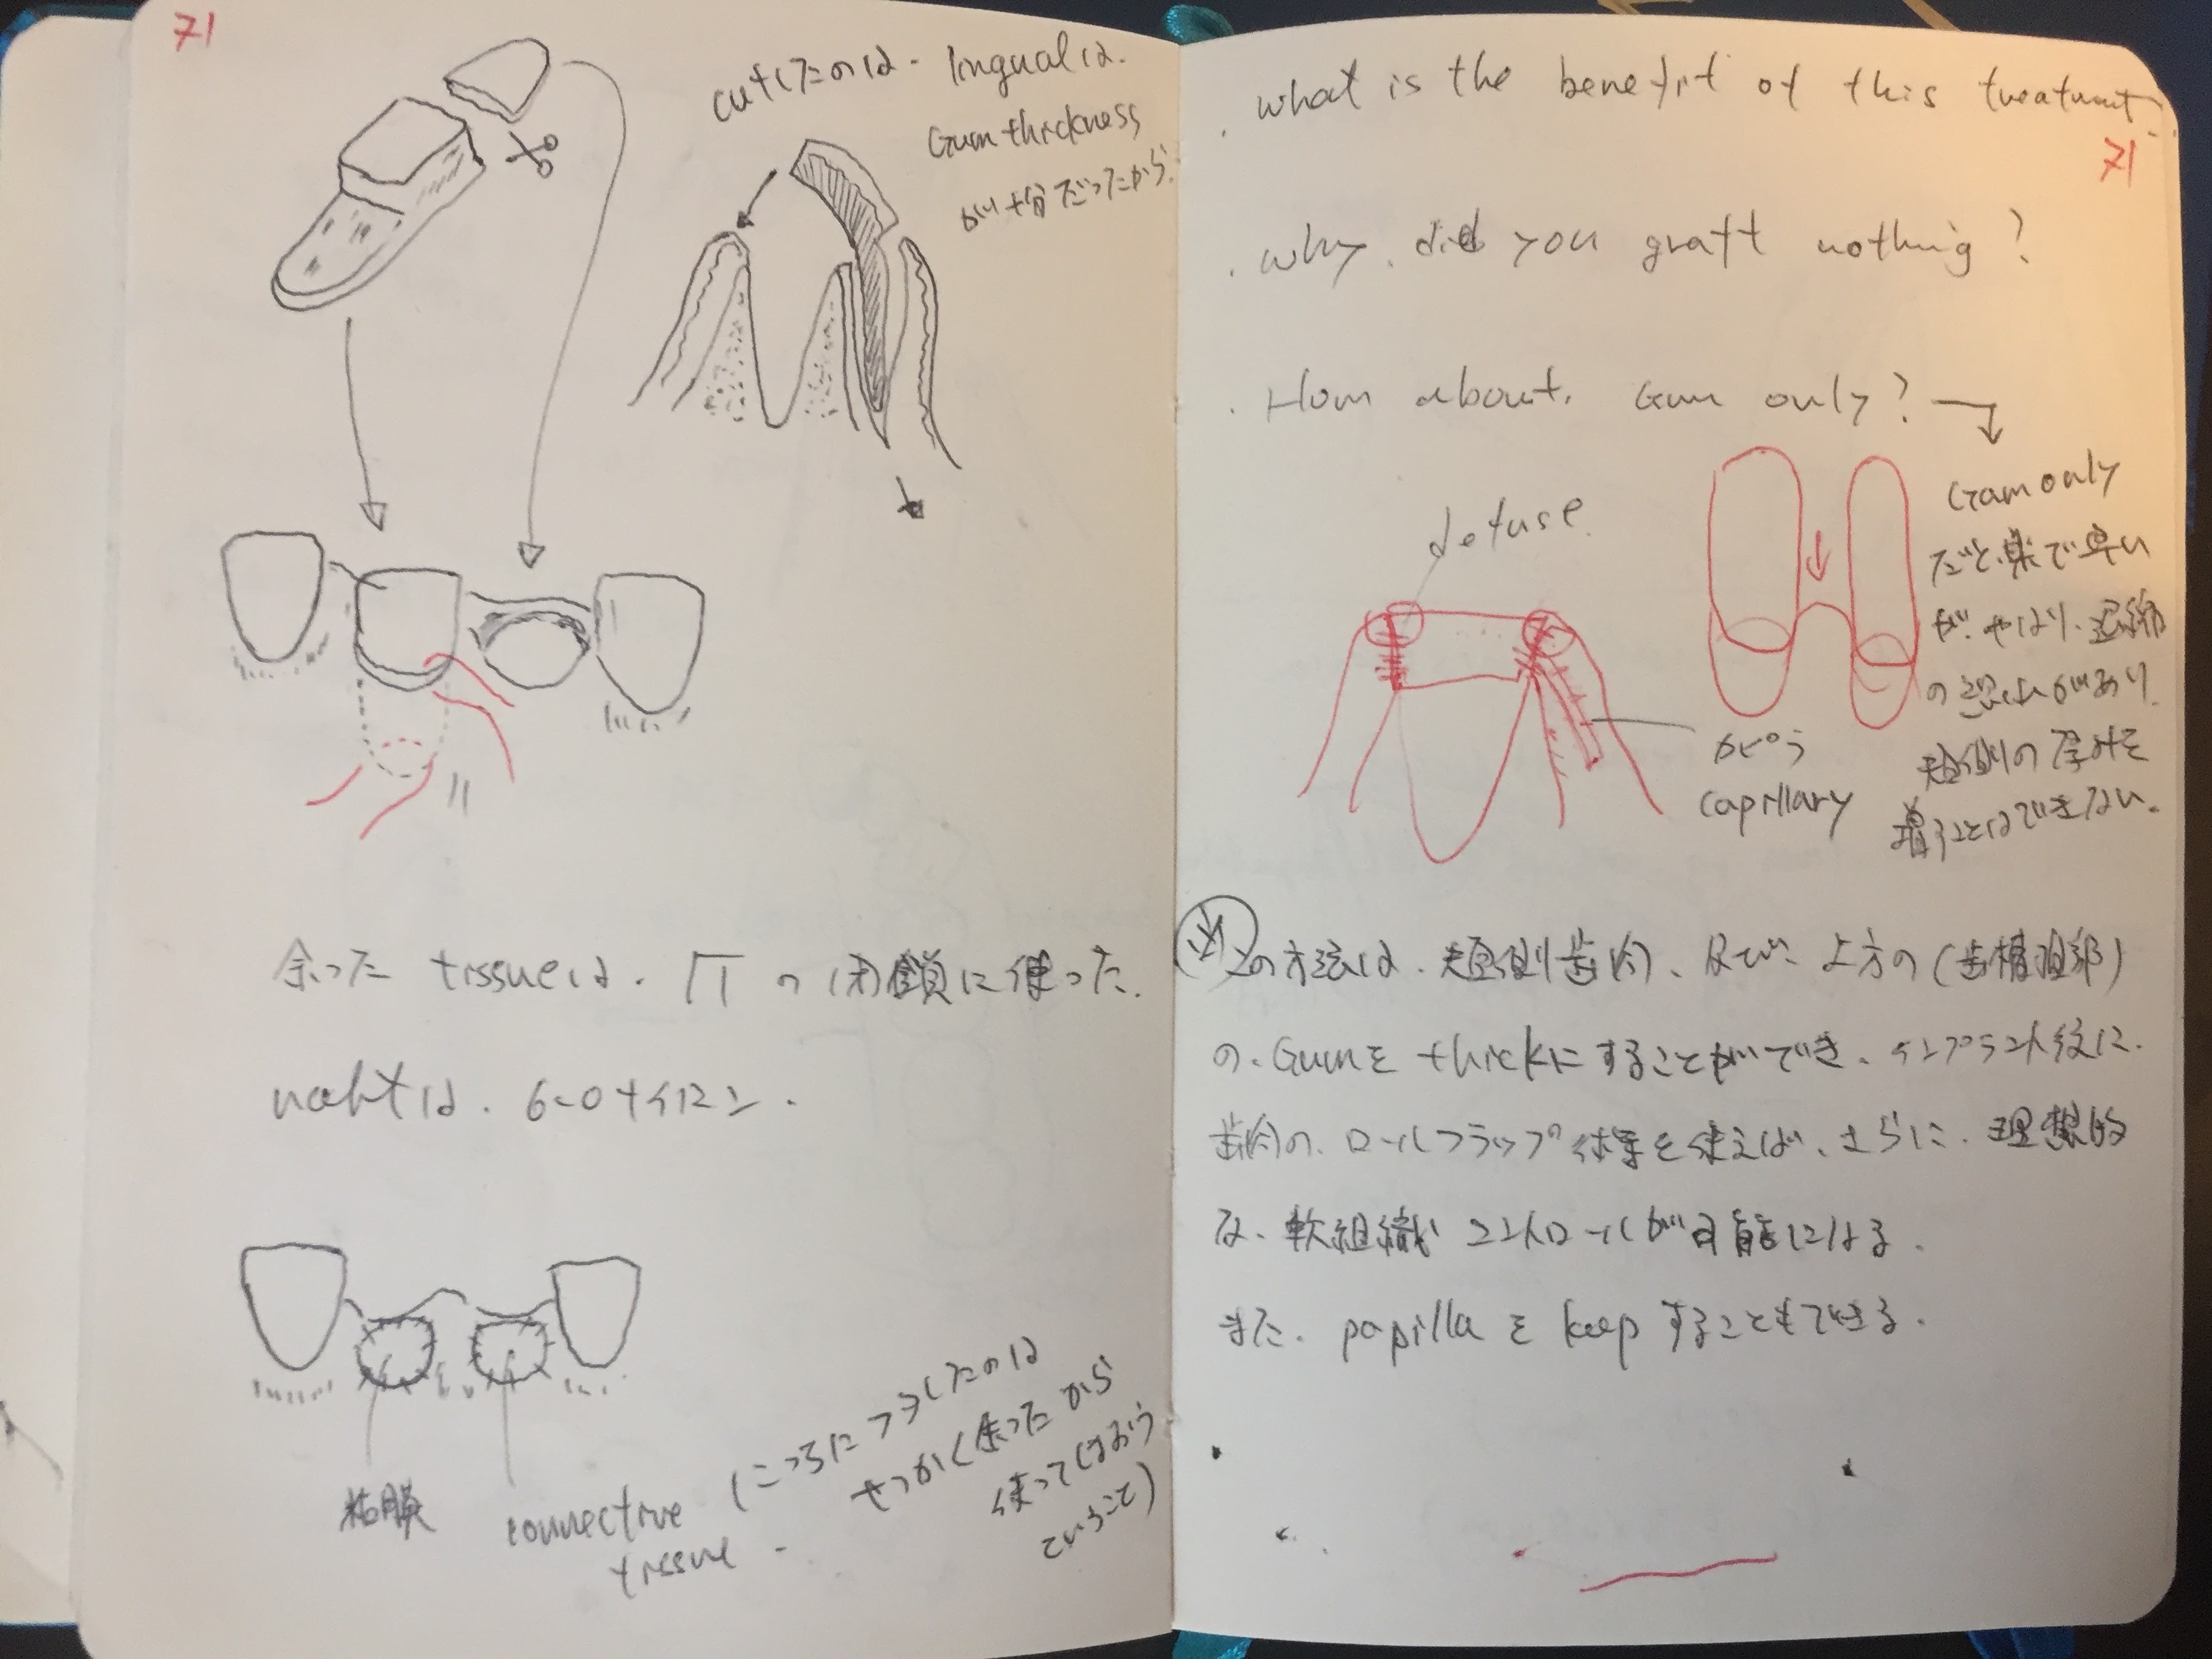 71
cutしたのは、lingualは、
Gum thickness
が十分だったから
余った tissueは、1Tの閉鎖に使った.
nahtは、6-0ナイロン.
粘膜
connective
tissue
(こっちにつうしたのは
せっかく余ったから
使ってしまおう
ということ)
what is the benefit of this treatment.
71
why did you graft nothing?
How about. Gum only?
Gum only
だと、楽で早い
が、やはり、退縮
の恐れがあり
唇側の厚みを
増すことはできない.
defuse.
かぴら
capillary
この方法は、唇側歯肉、及び、上方の(歯槽頂部)
の、Gumを thickにすることができ、インプラント後に.
歯肉の、ロールフラップ術等を使えば、さらに、理想的
な、軟組織コントロールが可能になる.
また、papillaを keepすることもできる.